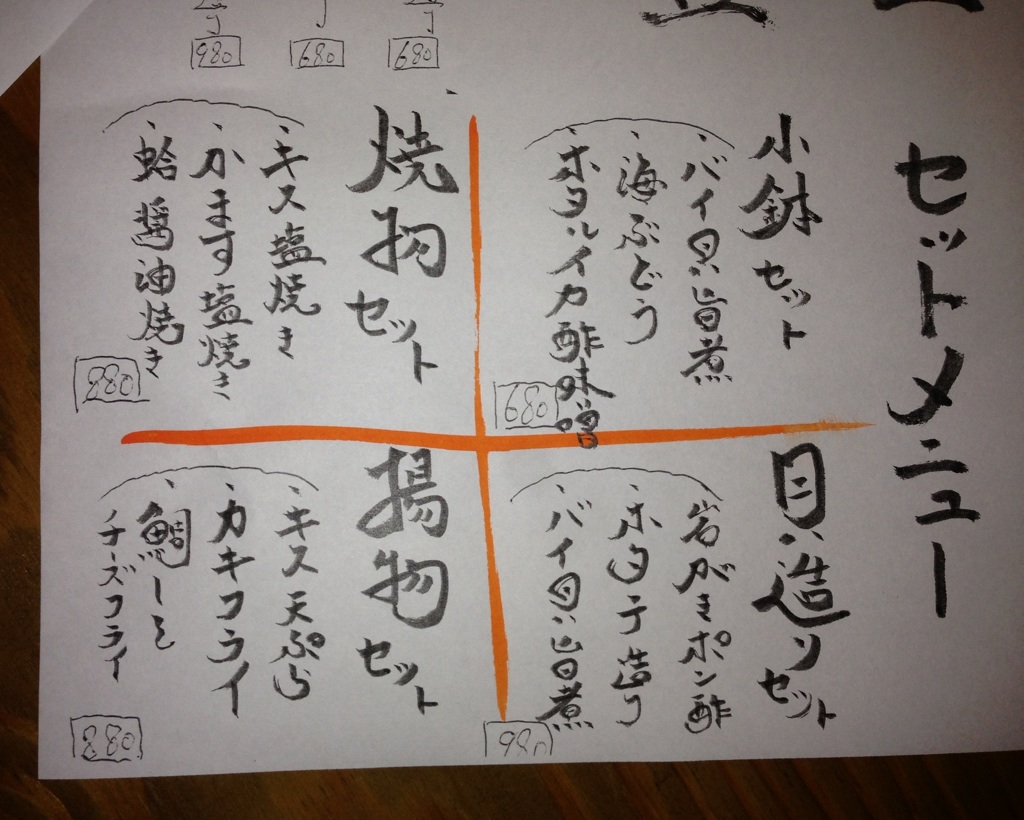 セットメニュー
小鉢セット
・バイ貝旨煮
・海ぶどう
・ホタルイカ酢味噌
680
貝造りセット
・岩がきポン酢
・ホタテ造り
・バイ貝旨煮
980
焼物セット
・キス塩焼き
・かます塩焼き
・蛤醤油焼き
880
揚物セット
・キス天ぷら
・カキフライ
・鯛しそ
チーズフライ
880
680
680
980